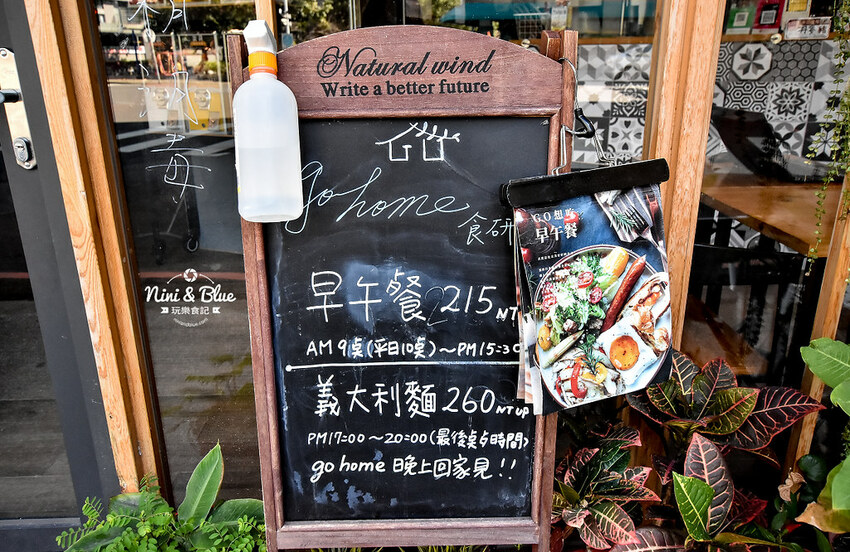 Natural wind
Write a better future
go home
食研
早午餐 215 NT
AM 9點(平日10點)~PM15:30
義大利麵 260 NT up
PM17:00~20:00(最後點餐時間)
go home 晚上回家見!!
GO想吃
早午餐
Nini & Blue
玩樂食記